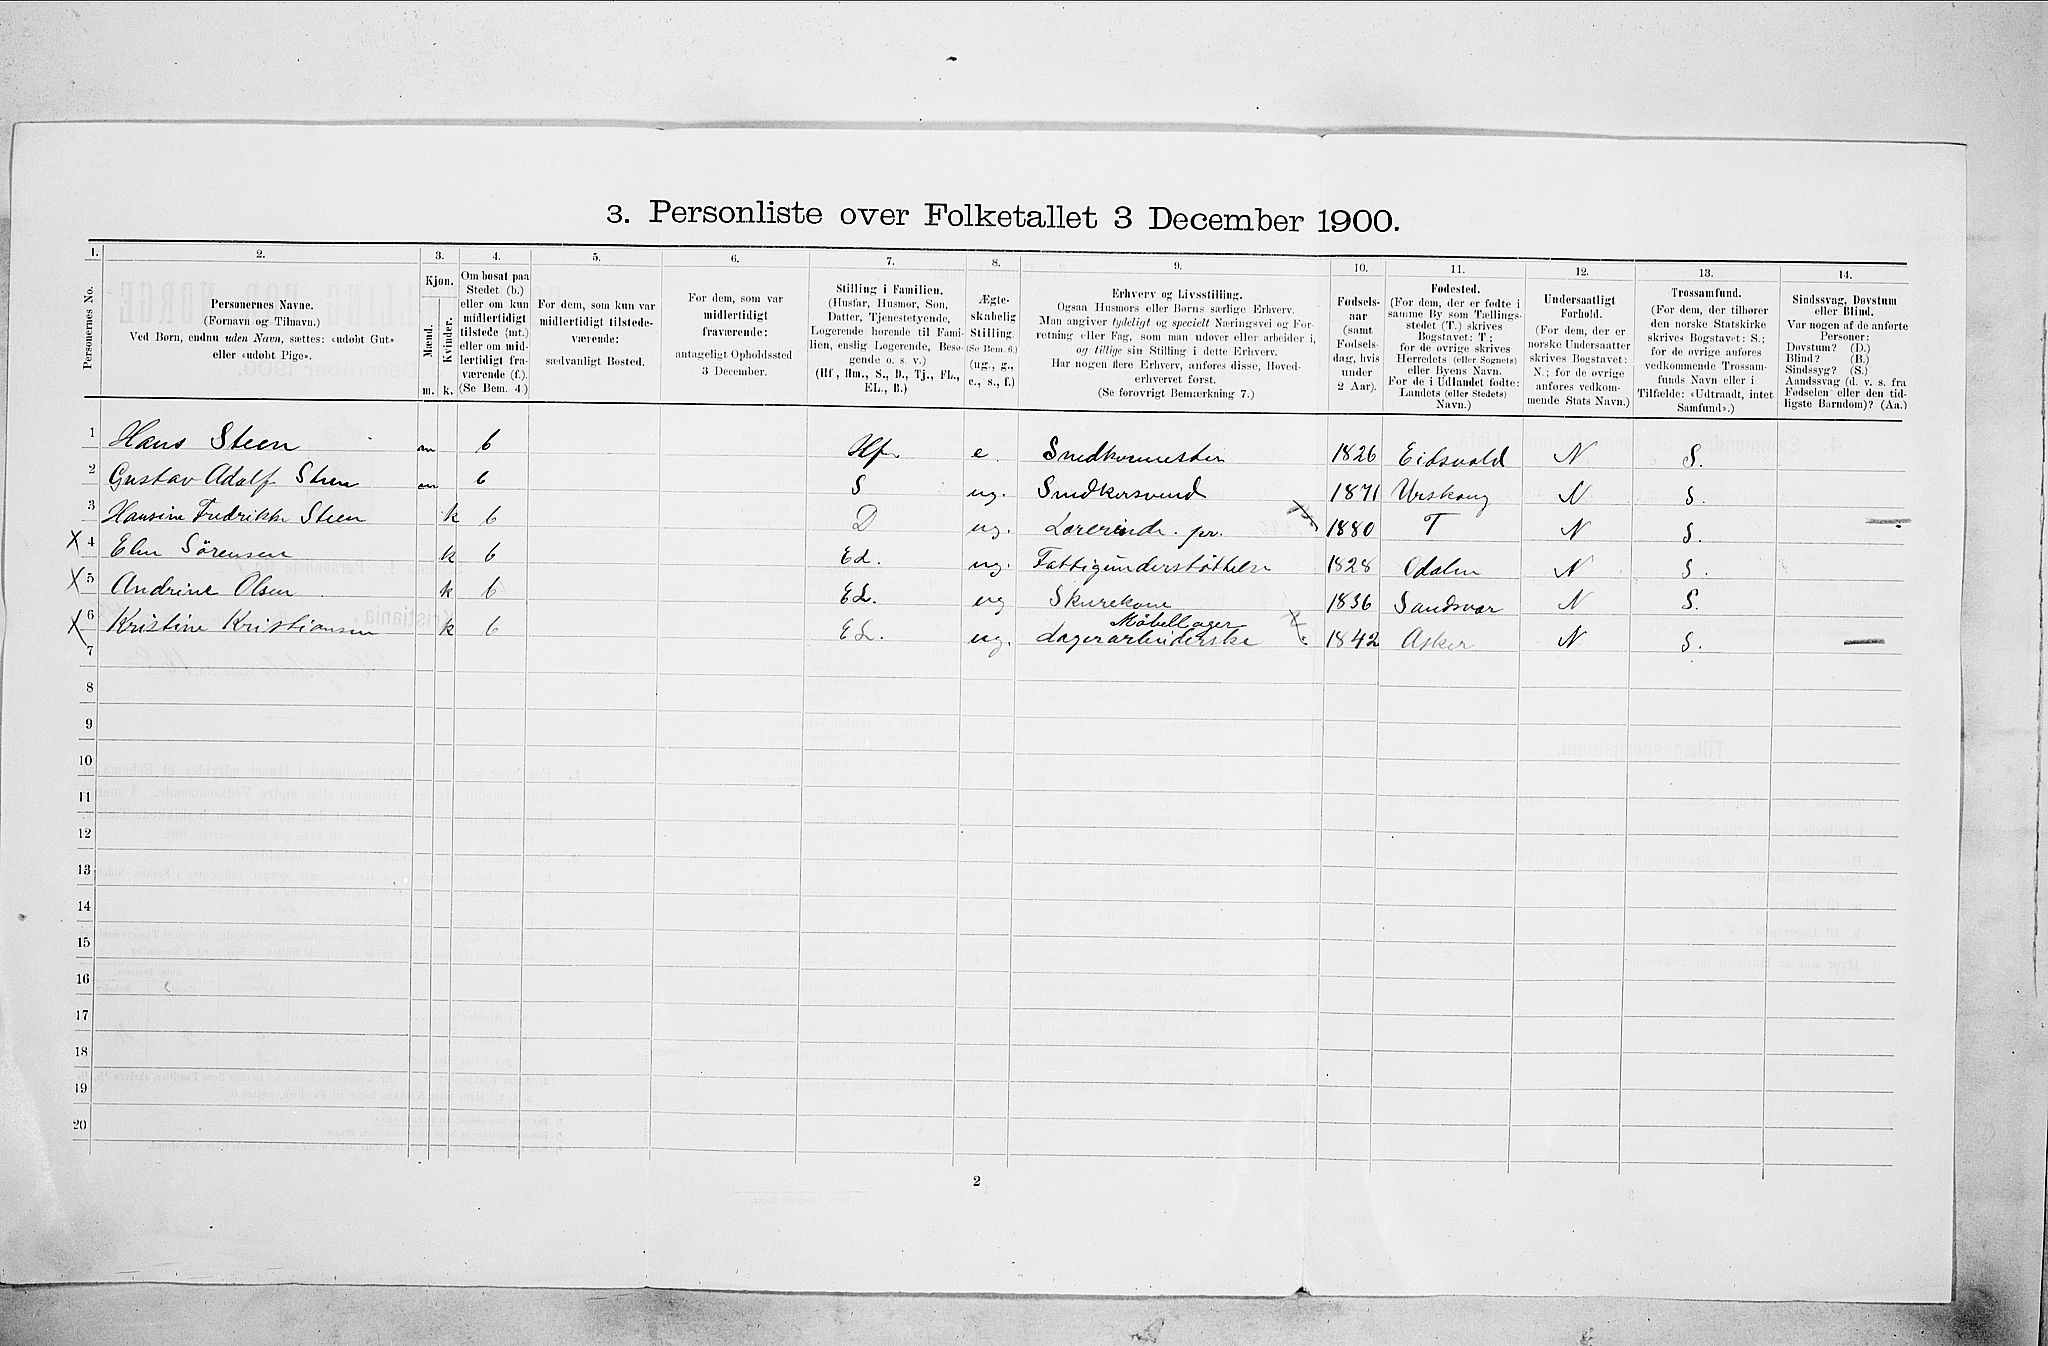 3. Personliste over Folketallet 3 December 1900.
1. 2. 3. 4. 5. 6. 7. 8. 9. 10. 11. 12. 13. 14.
Personernes No.
Personernes Navne.
(Fornavn og Tilnavn.)
Ved Børn, endnu uden Navn, sættes: «udøbt Gut»
eller «udøbt Pige».
Kjøn.
Mænd.
Kvinder.
m. k.
Om bosat paa
Stedet (b.)
eller om kun
midlertidigt
tilstede (mt.)
eller om mid-
lertidigt fra-
værende (f.).
(Se Bem. 4.)
For dem, som kun var
midlertidigt tilstede-
værende:
sædvanligt Bosted.
For dem, som var
midlertidigt
fraværende:
antageligt Opholdssted
3 December.
Stilling i Familien.
(Husfar, Husmor, Søn,
Datter, Tjenestetyende,
Logerende hørende til Fami-
lien, enslig Logerende, Besø-
gende o. s. v.)
(Hf., Hm., S., D., Tj., FL.,
EL., B.)
Ægte-
skabelig
Stilling.
(Se Bem. 6.)
(ug., g.,
e., s., f.)
Erhverv og Livsstilling.
Ogsaa Husmors eller Børns særlige Erhverv.
Man angiver tydeligt og specielt Næringsvei og For-
retning eller Fag, som man udøver eller arbeider i,
og tillige sin Stilling i dette Erhverv.
Har nogen flere Erhverv, anføres disse, Hoved-
erhvervet først.
(Se forøvrigt Bemærkning 7.)
Fødsels-
aar
(samt
Fødsels-
dag, hvis
under
2 Aar).
Fødested.
(For dem, der er fødte i
samme By som Tællings-
stedet (T.) skrives
Bogstavet: T;
for de øvrige skrives
Herredets (eller Sognets)
eller Byens Navn.
For de i Udlandet fødte:
Landets (eller Stedets)
Navn.)
Undersaatligt
Forhold.
(For dem, der er
norske Undersaatter
skrives Bogstavet:
N.; for de øvrige
anføres vedkom-
mende Stats Navn.)
Trossamfund.
(For dem, der tilhører
den norske Statskirke
skrives Bogstavet: S.;
for de øvrige anføres
vedkommende Trossam-
funds Navn eller i
Tilfælde: «Udtraadt, intet
Samfund».)
Sindssvag, Døvstum
eller Blind.
Var nogen af de anførte
Personer:
Døvstum? (D.)
Blind? (B.)
Sindssyg? (S.)
Aandssvag (d. v. s. fra
Fødselen eller den tid-
ligste Barndom)? (Aa.)
1 Hans Steen m b Hf. e. Snedkermester 1826 Eidsvold N S.
2 Gustav Adolf Steen m b S ug. Snedkersvend 1871 Urskoug N S.
3 Hansine Fredrikke Steen k b D ug. Lærerinde. pr. 1880 T N S. —
X 4 Elen Sörensen k b EL. ug. Fattigunderstøttelse 1828 Odalen N S.
X 5 Andrine Olsen k b EL. ug Skurekone 1836 Sandsvær N S.
Möbellager
X 6 Kristine Kristiansen k b EL. ug. Lagerarbeiderske 1842 Asker N S. —
7
8
9
10
11
12
13
14
15
16
17
18
19
20
2